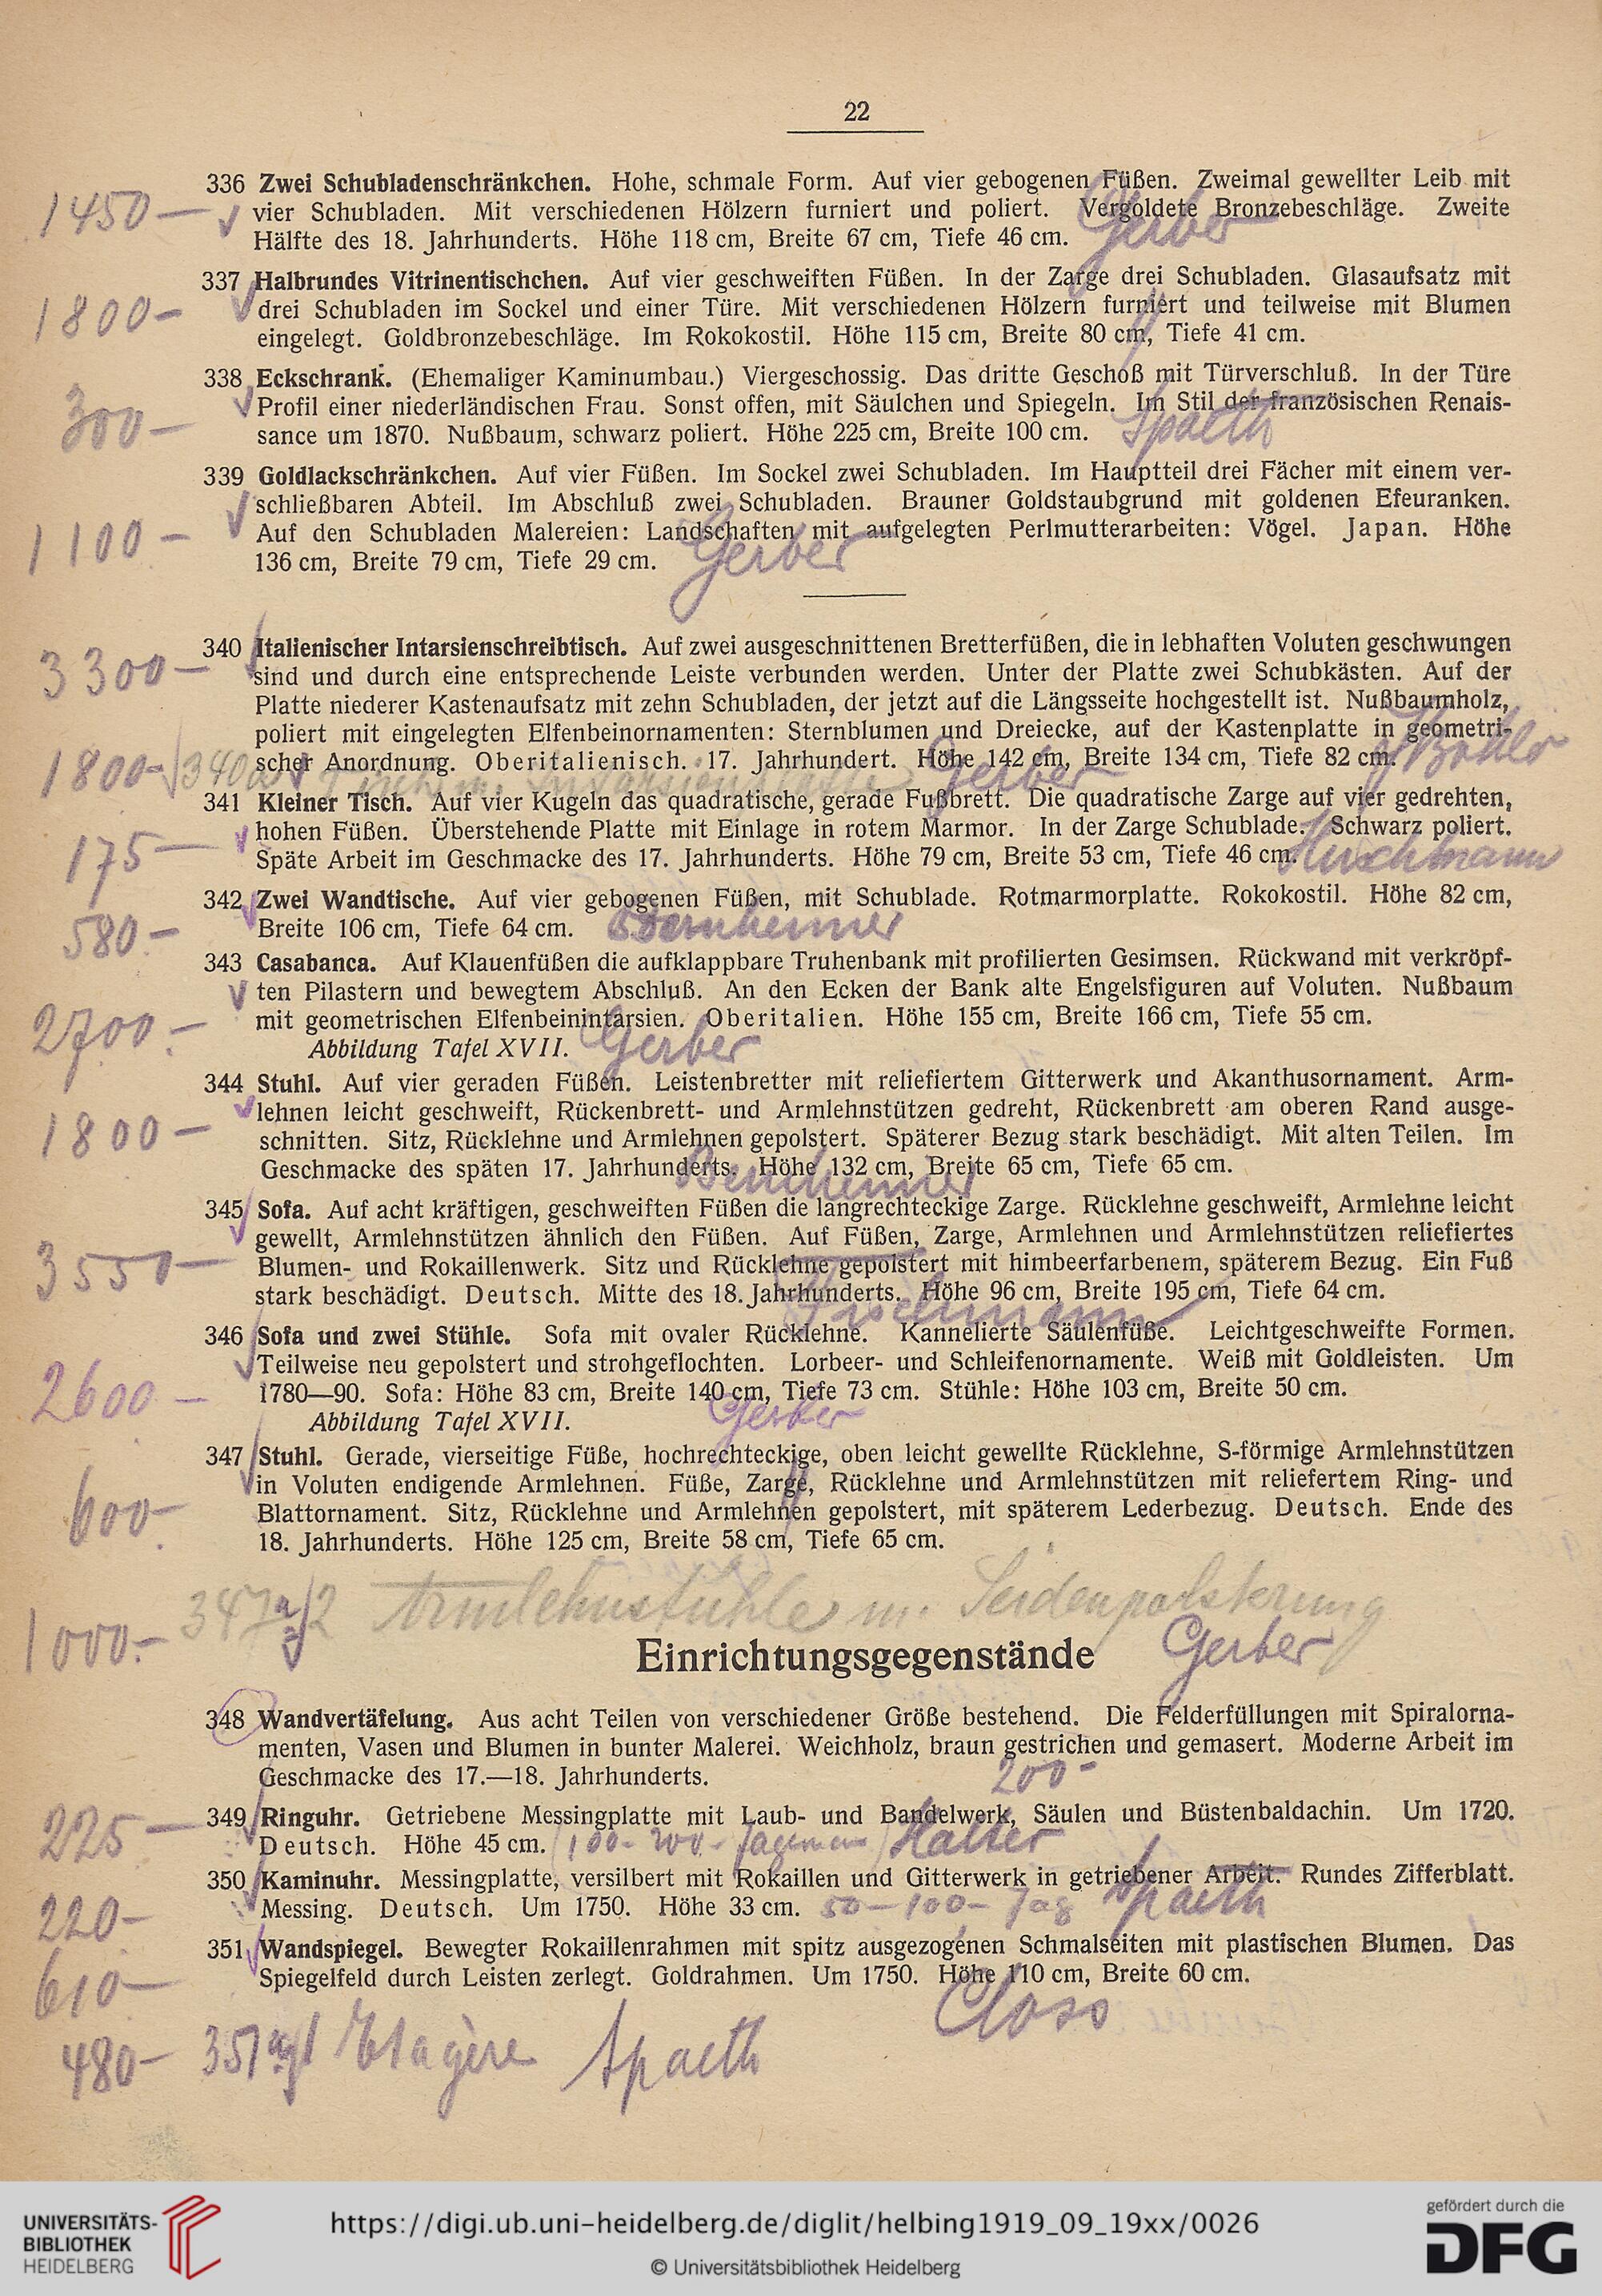 22
336 Zwei Schubladenschränkchen. Hohe, schmale Form. Auf vier gebogenen Füßen. Zweimal gewellter Leib mit
1450— vier Schubladen. Mit verschiedenen Hölzern furniert und poliert. Vergoldete Bronzebeschläge. Zweite
Hälfte des 18. Jahrhunderts. Höhe 118 cm, Breite 67 cm, Tiefe 46 cm. Gerber
337 Halbrundes Vitrinentischchen. Auf vier geschweiften Füßen. In der Zarge drei Schubladen. Glasaufsatz mit
1800- drei Schubladen im Sockel und einer Türe. Mit verschiedenen Hölzern furniert und teilweise mit Blumen
eingelegt. Goldbronzebeschläge. Im Rokokostil. Höhe 115 cm, Breite 80 cm, Tiefe 41 cm.
338 Eckschrank. (Ehemaliger Kaminumbau.) Viergeschossig. Das dritte Geschoß mit Türverschluß. In der Türe
300— Profil einer niederländischen Frau. Sonst offen, mit Säulchen und Spiegeln. Im Stil der französischen Renais-
sance um 1870. Nußbaum, schwarz poliert. Höhe 225 cm, Breite 100 cm. Spaeth
339 Goldlackschränkchen. Auf vier Füßen. Im Sockel zwei Schubladen. Im Hauptteil drei Fächer mit einem ver-
schließbaren Abteil. Im Abschluß zwei Schubladen. Brauner Goldstaubgrund mit goldenen Efeuranken.
1100- Auf den Schubladen Malereien: Landschaften mit aufgelegten Perlmutterarbeiten: Vögel. Japan. Höhe
136 cm, Breite 79 cm, Tiefe 29 cm. Gerber
340 Italienischer Intarsienschreibtisch. Auf zwei ausgeschnittenen Bretterfüßen, die in lebhaften Voluten geschwungen
3300— sind und durch eine entsprechende Leiste verbunden werden. Unter der Platte zwei Schubkästen. Auf der
Platte niederer Kastenaufsatz mit zehn Schubladen, der jetzt auf die Längsseite hochgestellt ist. Nußbaumholz,
poliert mit eingelegten Elfenbeinornamenten: Sternblumen und Dreiecke, auf der Kastenplatte in geometri-
scher Anordnung. Oberitalienisch. 17. Jahrhundert. Höhe 142 cm, Breite 134 cm, Tiefe 82 cm.
1800- 340a Tisch m. Intarsien Gerber
341 Kleiner Tisch. Auf vier Kugeln das quadratische, gerade Fußbrett. Die quadratische Zarge auf vier gedrehten,
175— hohen Füßen. Überstehende Platte mit Einlage in rotem Marmor. In der Zarge Schublade. Schwarz poliert.
Späte Arbeit im Geschmacke des 17. Jahrhunderts. Höhe 79 cm, Breite 53 cm, Tiefe 46 cm.
342 Zwei Wandtische. Auf vier gebogenen Füßen, mit Schublade. Rotmarmorplatte. Rokokostil. Höhe 82 cm,
580.- Breite 106 cm, Tiefe 64 cm. Bernheimer
343 Casabanca. Auf Klauenfüßen die aufklappbare Truhenbank mit profilierten Gesimsen. Rückwand mit verkröpf-
ten Pilastern und bewegtem Abschluß. An den Ecken der Bank alte Engelsfiguren auf Voluten. Nußbaum
2700.- mit geometrischen Elfenbeinintarsien. Oberitalien. Höhe 155 cm, Breite 166 cm, Tiefe 55 cm.
Abbildung Tafel XVII. Gerber
344 Stuhl. Auf vier geraden Füßen. Leistenbretter mit reliefiertem Gitterwerk und Akanthusornament. Arm-
1800— lehnen leicht geschweift, Rückenbrett- und Armlehnstützen gedreht, Rückenbrett am oberen Rand ausge-
schnitten. Sitz, Rücklehne und Armlehnen gepolstert. Späterer Bezug stark beschädigt. Mit alten Teilen. Im
Geschmacke des späten 17. Jahrhunderts. Höhe 132 cm, Breite 65 cm, Tiefe 65 cm.
345 Sofa. Auf acht kräftigen, geschweiften Füßen die langrechteckige Zarge. Rücklehne geschweift, Armlehne leicht
gewellt, Armlehnstützen ähnlich den Füßen. Auf Füßen, Zarge, Armlehnen und Armlehnstützen reliefiertes
3550— Blumen- und Rokaillenwerk. Sitz und Rücklehne gepolstert mit himbeerfarbenem, späterem Bezug. Ein Fuß
stark beschädigt. Deutsch. Mitte des 18. Jahrhunderts. Höhe 96 cm, Breite 195 cm, Tiefe 64 cm.
346 Sofa und zwei Stühle. Sofa mit ovaler Rücklehne. Kannelierte Säulenfüße. Leichtgeschweifte Formen.
Teilweise neu gepolstert und strohgeflochten. Lorbeer- und Schleifenornamente. Weiß mit Goldleisten. Um
2600.— 1780—90. Sofa: Höhe 83 cm, Breite 140 cm, Tiefe 73 cm. Stühle: Höhe 103 cm, Breite 50 cm.
Abbildung Tafel XVII. Gerber
347 Stuhl. Gerade, vierseitige Füße, hochrechteckige, oben leicht gewellte Rücklehne, S-förmige Armlehnstützen
in Voluten endigende Armlehnen. Füße, Zarge, Rücklehne und Armlehnstützen mit reliefertem Ring- und
600- Blattornament. Sitz, Rücklehne und Armlehnen gepolstert, mit späterem Lederbezug. Deutsch. Ende des
18. Jahrhunderts. Höhe 125 cm, Breite 58 cm, Tiefe 65 cm.
1000.- 347a 2 Armlehnstühle m. Seidenpolsterung
Einrichtungsgegenstände Gerber
348 Wandvertäfelung. Aus acht Teilen von verschiedener Größe bestehend. Die Felderfüllungen mit Spiralorna-
menten, Vasen und Blumen in bunter Malerei. Weichholz, braun gestrichen und gemasert. Moderne Arbeit im
Geschmacke des 17.—18. Jahrhunderts. 200-
225— 349 Ringuhr. Getriebene Messingplatte mit Laub- und Bandelwerk, Säulen und Büstenbaldachin. Um 1720.
Deutsch. Höhe 45 cm. 100- 200-
350 Kaminuhr. Messingplatte, versilbert mit Rokaillen und Gitterwerk in getriebener Arbeit. Rundes Zifferblatt.
220- Messing. Deutsch. Um 1750. Höhe 33 cm. 50—100- Spaeth
351 Wandspiegel. Bewegter Rokaillenrahmen mit spitz ausgezogenen Schmalseiten mit plastischen Blumen. Das
610- Spiegelfeld durch Leisten zerlegt. Goldrahmen. Um 1750. Höhe 110 cm, Breite 60 cm.
Closs
480- 351a Etagère Spaeth
UNIVERSITÄTS-
BIBLIOTHEK
HEIDELBERG
https://digi.ub.uni-heidelberg.de/diglit/helbing1919_09_19xx/0026
© Universitätsbibliothek Heidelberg
gefördert durch die
DFG